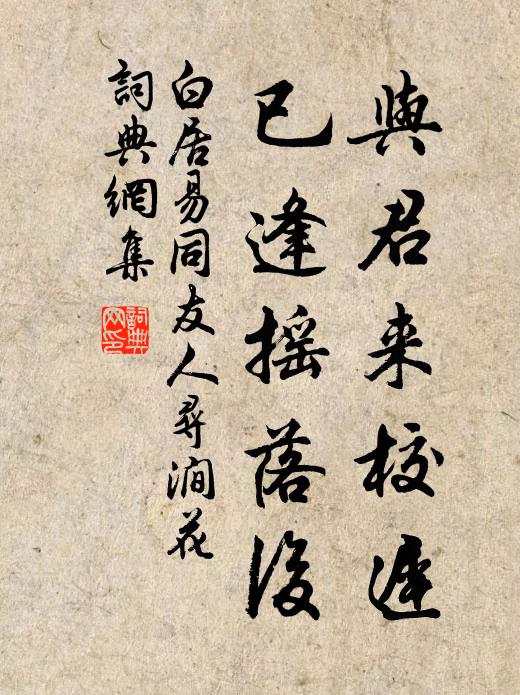 與君来校遲
已逢摇落後
白居易同友人尋澗花
詞典網集
詞典网印